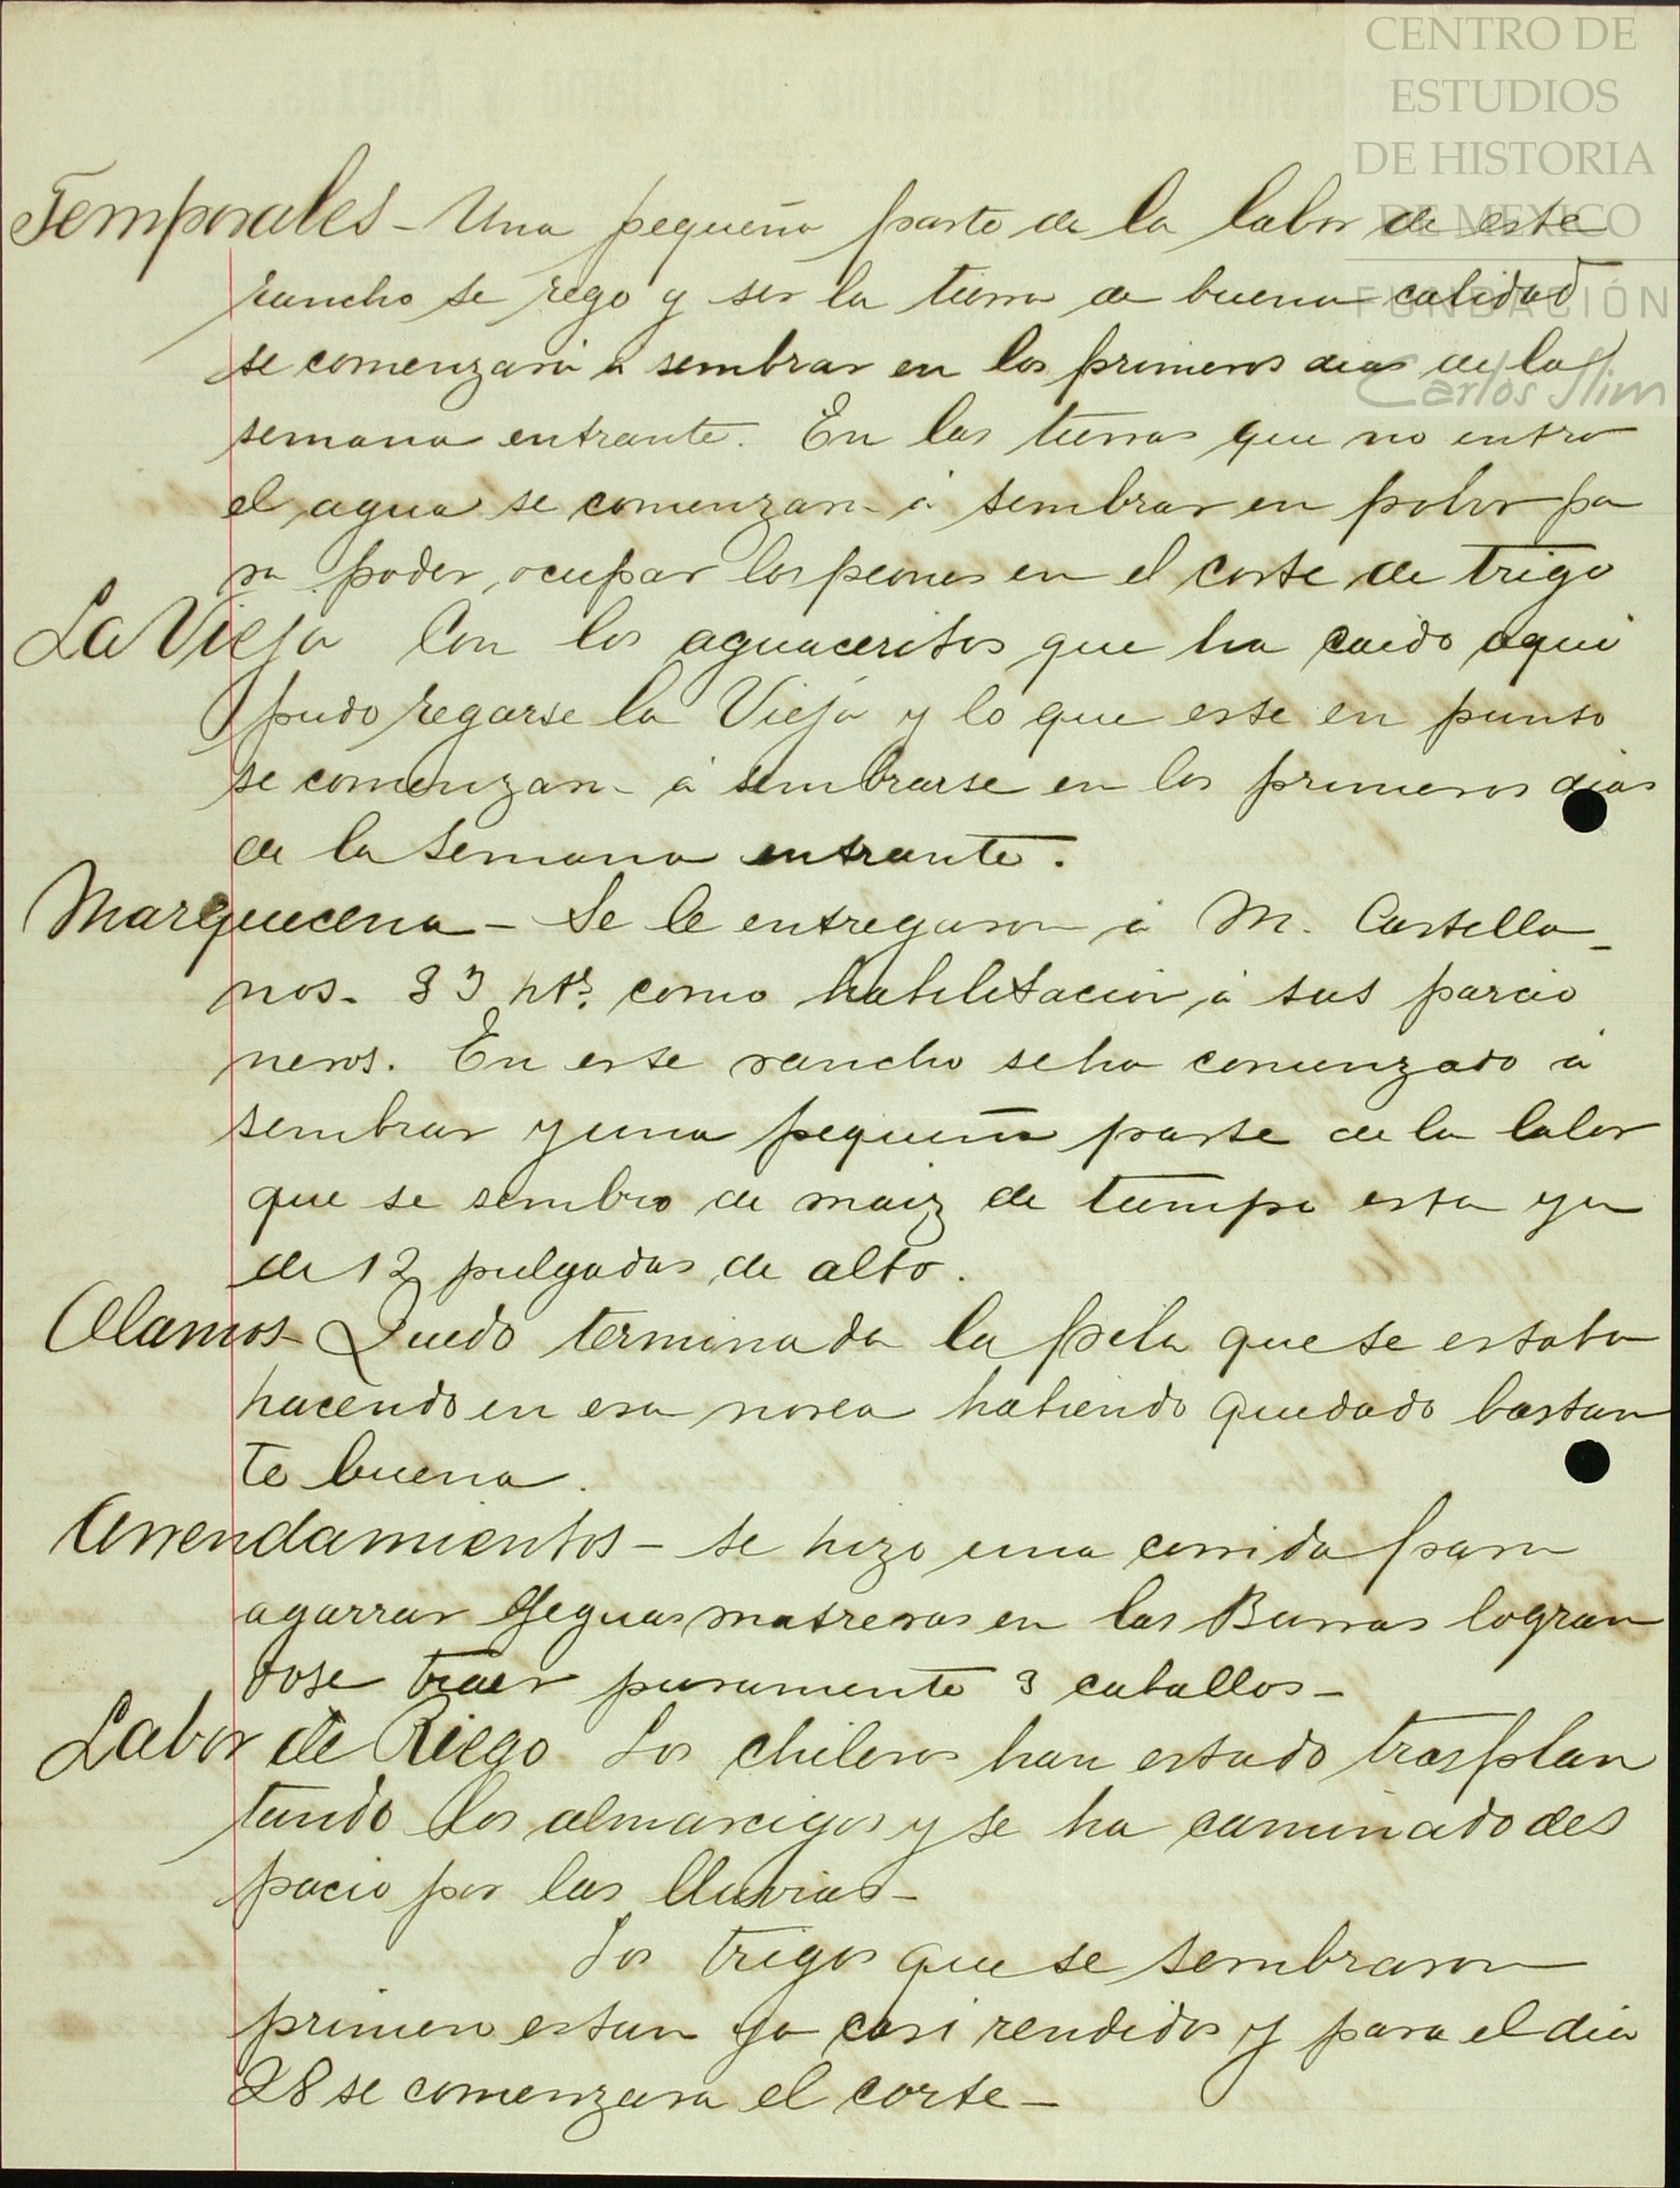 CENTRO DE
ESTUDIOS
DE HISTORIA
DE MEXICO
FUNDACIÓN
Carlos Slim
Temporales - Una pequeña parte de la labor de este
rancho se rego y ser la tierra de buena calidad
se comenzará á sembrar en los primeros dias de la
semana entrante. En las tierras que no entro
el agua se comenzara á sembrar en polvo pa
ra poder ocupar los peones en el corte de trigo
La Vieja Con los aguaceritos que ha caido aqui
pudo regarse la Vieja y lo que este en punto
se comenzara á sembrarse en los primeros dias
de la semana entrante.
Marquecena - Se le entregaron á M. Castella-
nos. 33 hts. como habilitación á sus parcio
neros. En este rancho se ha comenzado á
sembrar y una pequeña parte de la labor
que se sembro de maiz de tiempo esta ya
de 12 pulgadas de alto.
Alamos - Quedo terminada la pila que se estaba
hacendo en esa noria habiendo quedado bastan
te buena.
Arrendamientos - se hizo una corrida para
agarrar Yeguas matreras en las Barras logran
dose traer puramente 3 caballos -
Labor de Riego Los chileros han estado trasplan
tando los almarcigos y se ha caminado des
pacio por las lluvias -
Los trigos que se sembraron
primero estan ya casi rendidos y para el dia
28 se comenzara el corte -